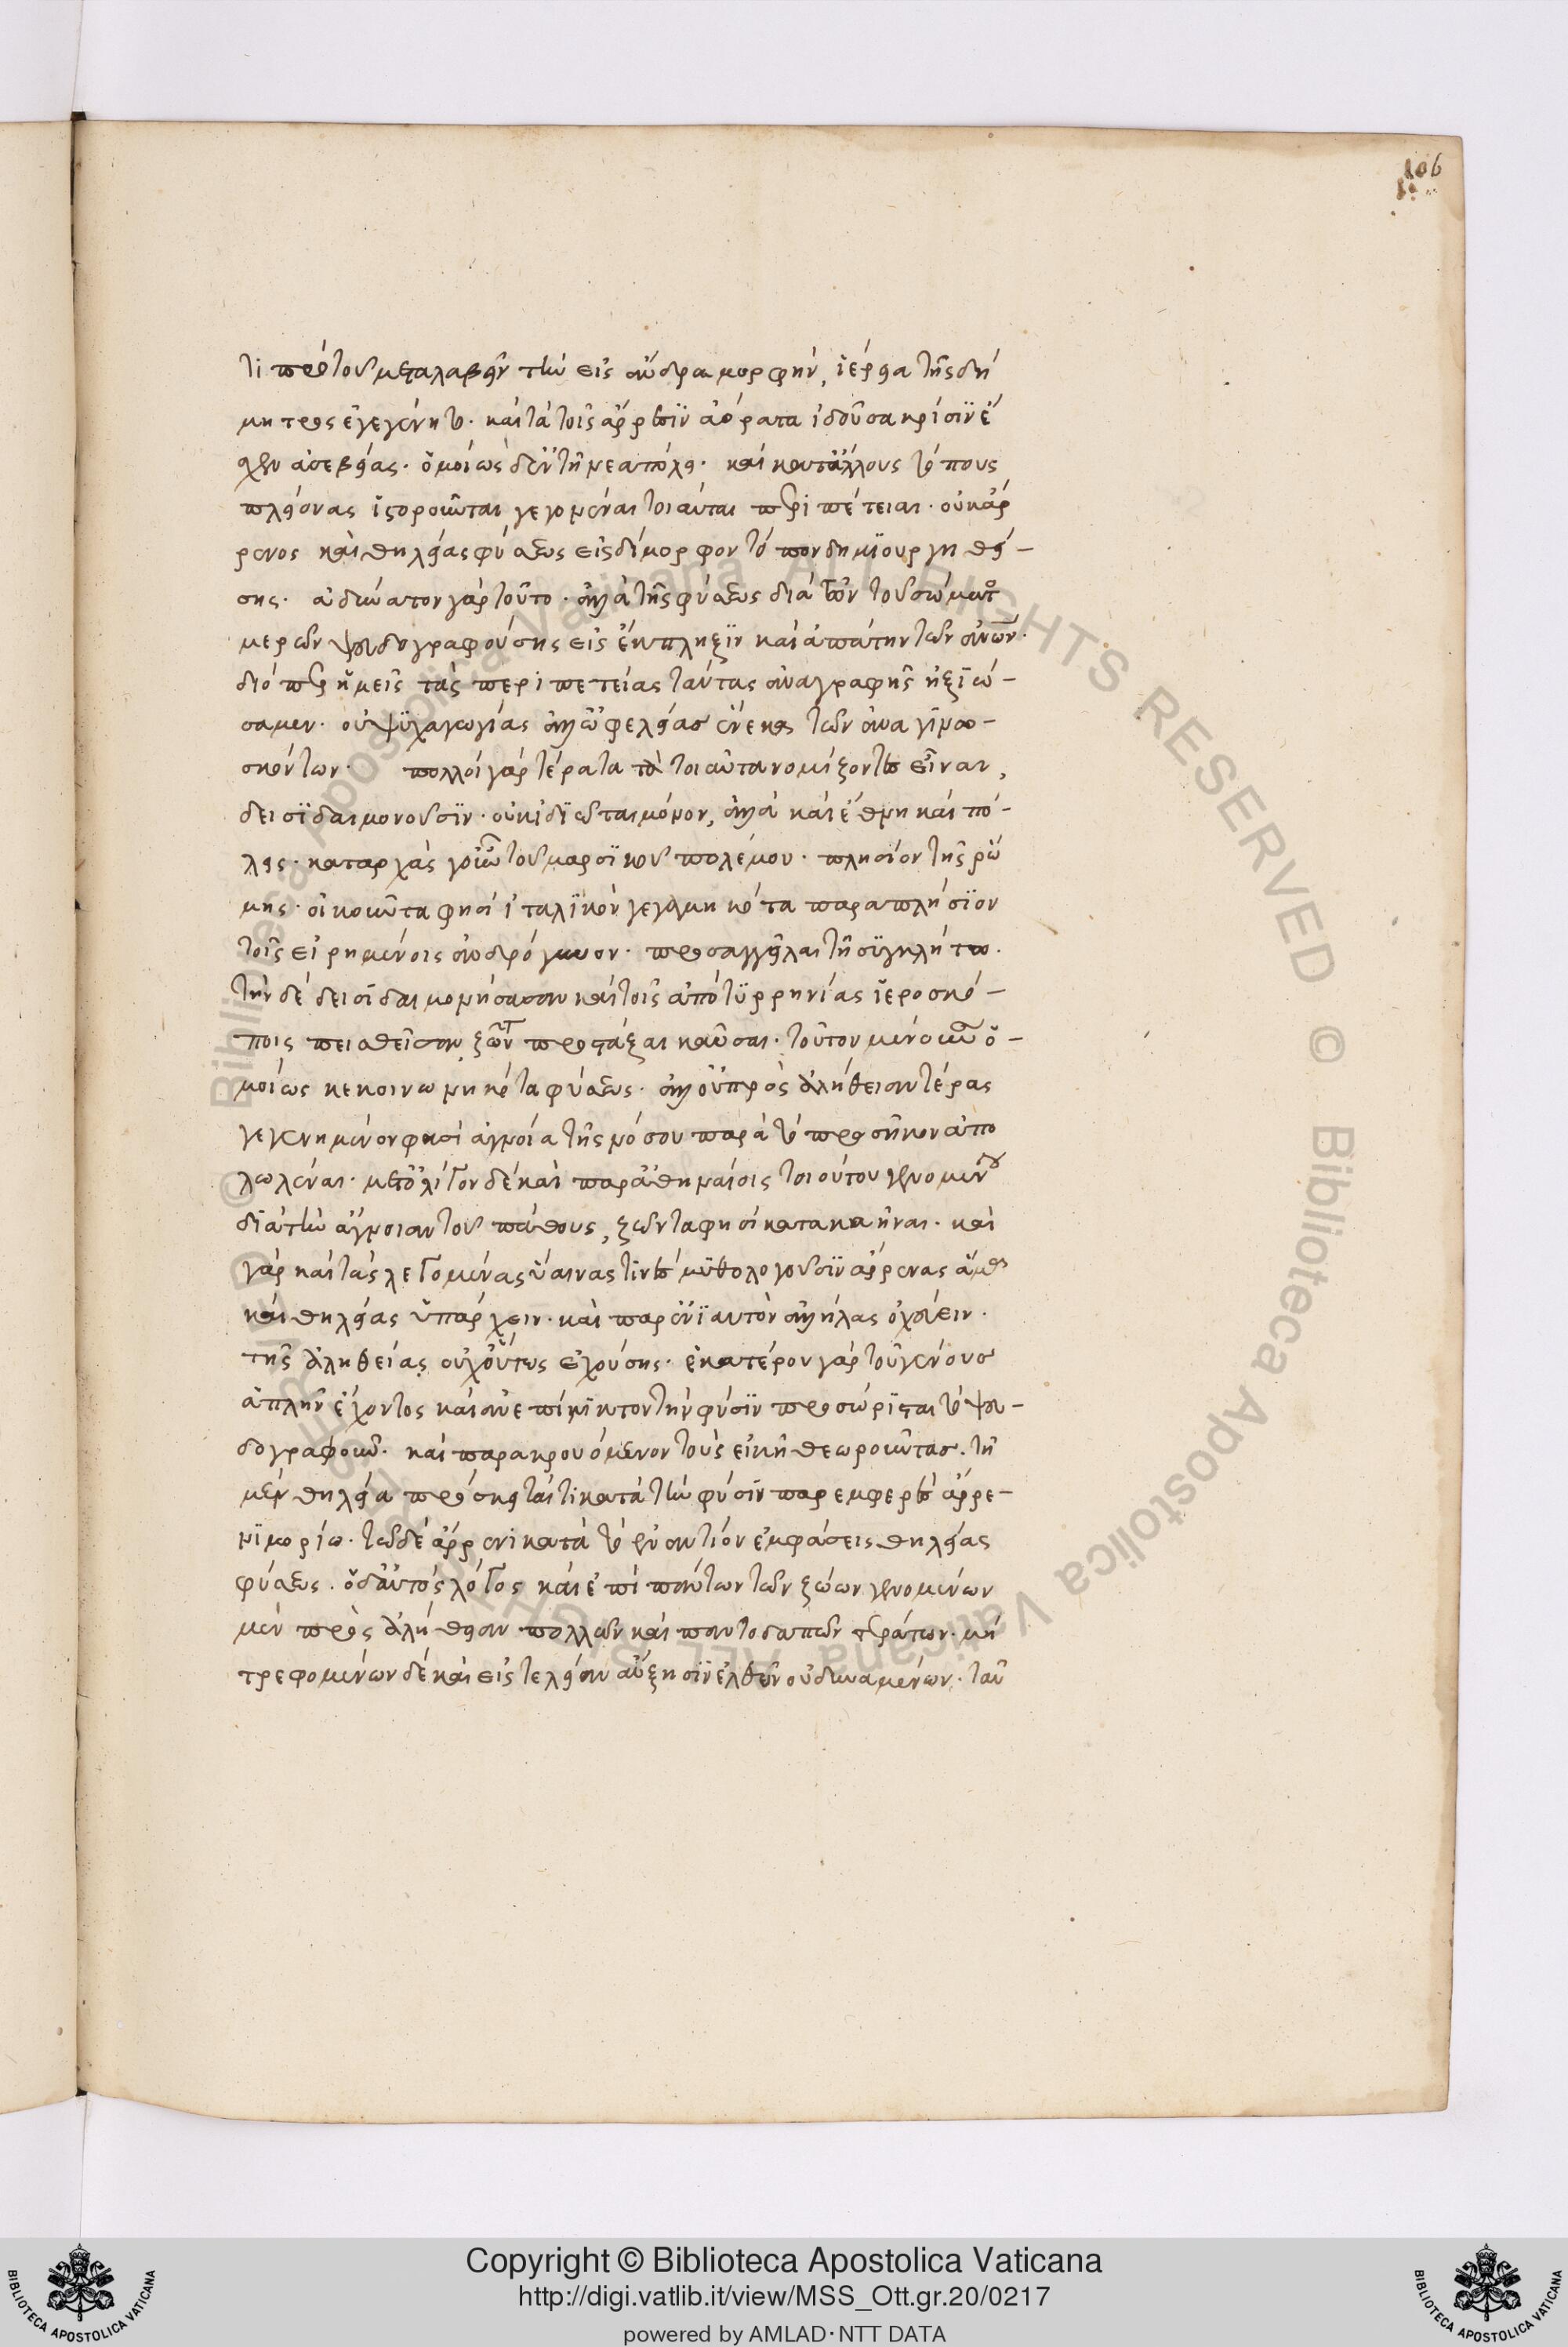 106
τι πρὸ τοῦ μεταλαβεῖν τὴν εἰς ἄνδρα μορφήν, ἱέρεια τῆς δή
μητρος ἐγεγένητο. καὶ τὰ τοῖς ἄρρεσιν ἀόρατα ἰδοῦσα κρίσιν ἔ
σχεν ἀσεβείας. ὁμοίως δ' ἐν τῆ νεαπόλει. καὶ κατ' ἄλλους τόπους
πλείονας ἱστοροῦνται γεγονέναι τοιαῦται περιπέτειαι. οὐκ ἄρ
ρενος καὶ θηλείας φύσεως εἰς δίμορφον τύπον δημιουργηθεί-
σης. ἀδύνατον γὰρ τοῦτο. ἀλλὰ τῆς φύσεως διὰ τῶν τοῦ σώματος
μερῶν ψευδογραφούσης εἰς ἔκπληξιν καὶ ἀπάτην τῶν ἀνῶν.
διόπερ ἡμεῖς τὰς περιπετείας ταύτας ἀναγραφῆς ἠξιώ-
σαμεν. οὐ ψυχαγωγίας ἀλλ' ὠφελείας ἕνεκα τῶν ἀναγινω-
σκόντων. πολλοὶ γὰρ τέρατα τὰ τοιαῦτα νομίζοντες εἶναι,
δεισιδαιμονοῦσιν. οὐκ ἰδιῶται μόνον, ἀλλὰ καὶ ἔθνη καὶ πό-
λεις. κατ' ἀρχὰς γοῦν τοῦ μαρσικοῦ πολέμου. πλησίον τῆς ῥώ
μης. οἰκοῦντα φησὶ ἰταλικὸν γεγαμηκότα παραπλήσιον
τοῖς εἰρημένοις ἀνδρόγυνον. προσαγγεῖλαι τῆ συγκλήτω.
τὴν δὲ δεισιδαιμονήσασαν καὶ τοῖς ἀπὸ τυρρηνίας ἱεροσκό-
ποις πεισθεῖσαν, ζῶντα προστάξαι καῦσαι. τοῦτον μὲν οὖν ὁ-
μοίως κεκοινωνηκότα φύσεως. ἀλλ' οὐ πρὸς ἀλήθειαν τέρας
γεγενημένον φασὶ ἀγνοία τῆς νόσου παρὰ τὸ προσῆκον ἀπο
λωλέναι. μετ' ὀλίγον δὲ καὶ παρ' ἀθηναίοις τοιούτου γενομένου
διὰ τὴν ἄγνοιαν τοῦ πάθους, ζῶντα φησὶ κατακαῆναι. καὶ
γὰρ καὶ τὰς λεγομένας ὑαίνας τινὲς μυθολογοῦσιν ἄρρενας ἅμα
καὶ θηλείας ὑπάρχειν. καὶ παρ' ἐνιαυτὸν ἀλλήλας ὀχεύειν.
τῆς ἀληθείας οὐχ οὕτως ἐχούσης. ἑκατέρου γὰρ τοῦ γένους
ἁπλῆν ἔχοντος καὶ ἀνεπίμικτον τὴν φύσιν προσώρισται τὸ ψευ-
δογραφοῦν. καὶ παρακρουόμενον τοὺς εἰκῆ θεωροῦντας. τῆ
μὲν θηλεία πρόσκειταί τι κατὰ τὴν φύσιν παρεμφερὲς ἄρρε-
νι μορίω. τῶ δὲ ἄρρενι κατὰ τὸ ἐναντίον ἔμφασεις θηλείας
φύσεως. ὁ δ' αὐτὸς λόγος καὶ ἐπὶ πάντων τῶν ζώων γενομένων
μὲν πρὸς ἀλήθειαν πολλῶν καὶ παντοδαπῶν τεράτων. μὴ
τρεφομένων δὲ καὶ εἰς τελείαν αὔξησιν ἐλθεῖν οὐ δυναμένων. ταῦ
Copyright © Biblioteca Apostolica Vaticana
http://digi.vatlib.it/view/MSS_Ott.gr.20/0217
powered by AMLAD·NTT DATA